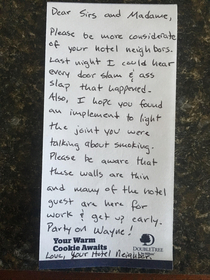 Dear Sirs and Madame,
Please be more considerate
of your hotel neighbors.
Last night I could hear
every door slam & ass
slap that happened.
Also, I hope you found
an implement to light
the joint you were
talking about smoking.
Please be aware that
these walls are thin
and many of the hotel
guest are here for
work & get up early.
Party on Wayne!
Your Warm
Cookie Awaits
DOUBLETREE
Love, Your Hotel Neighbor